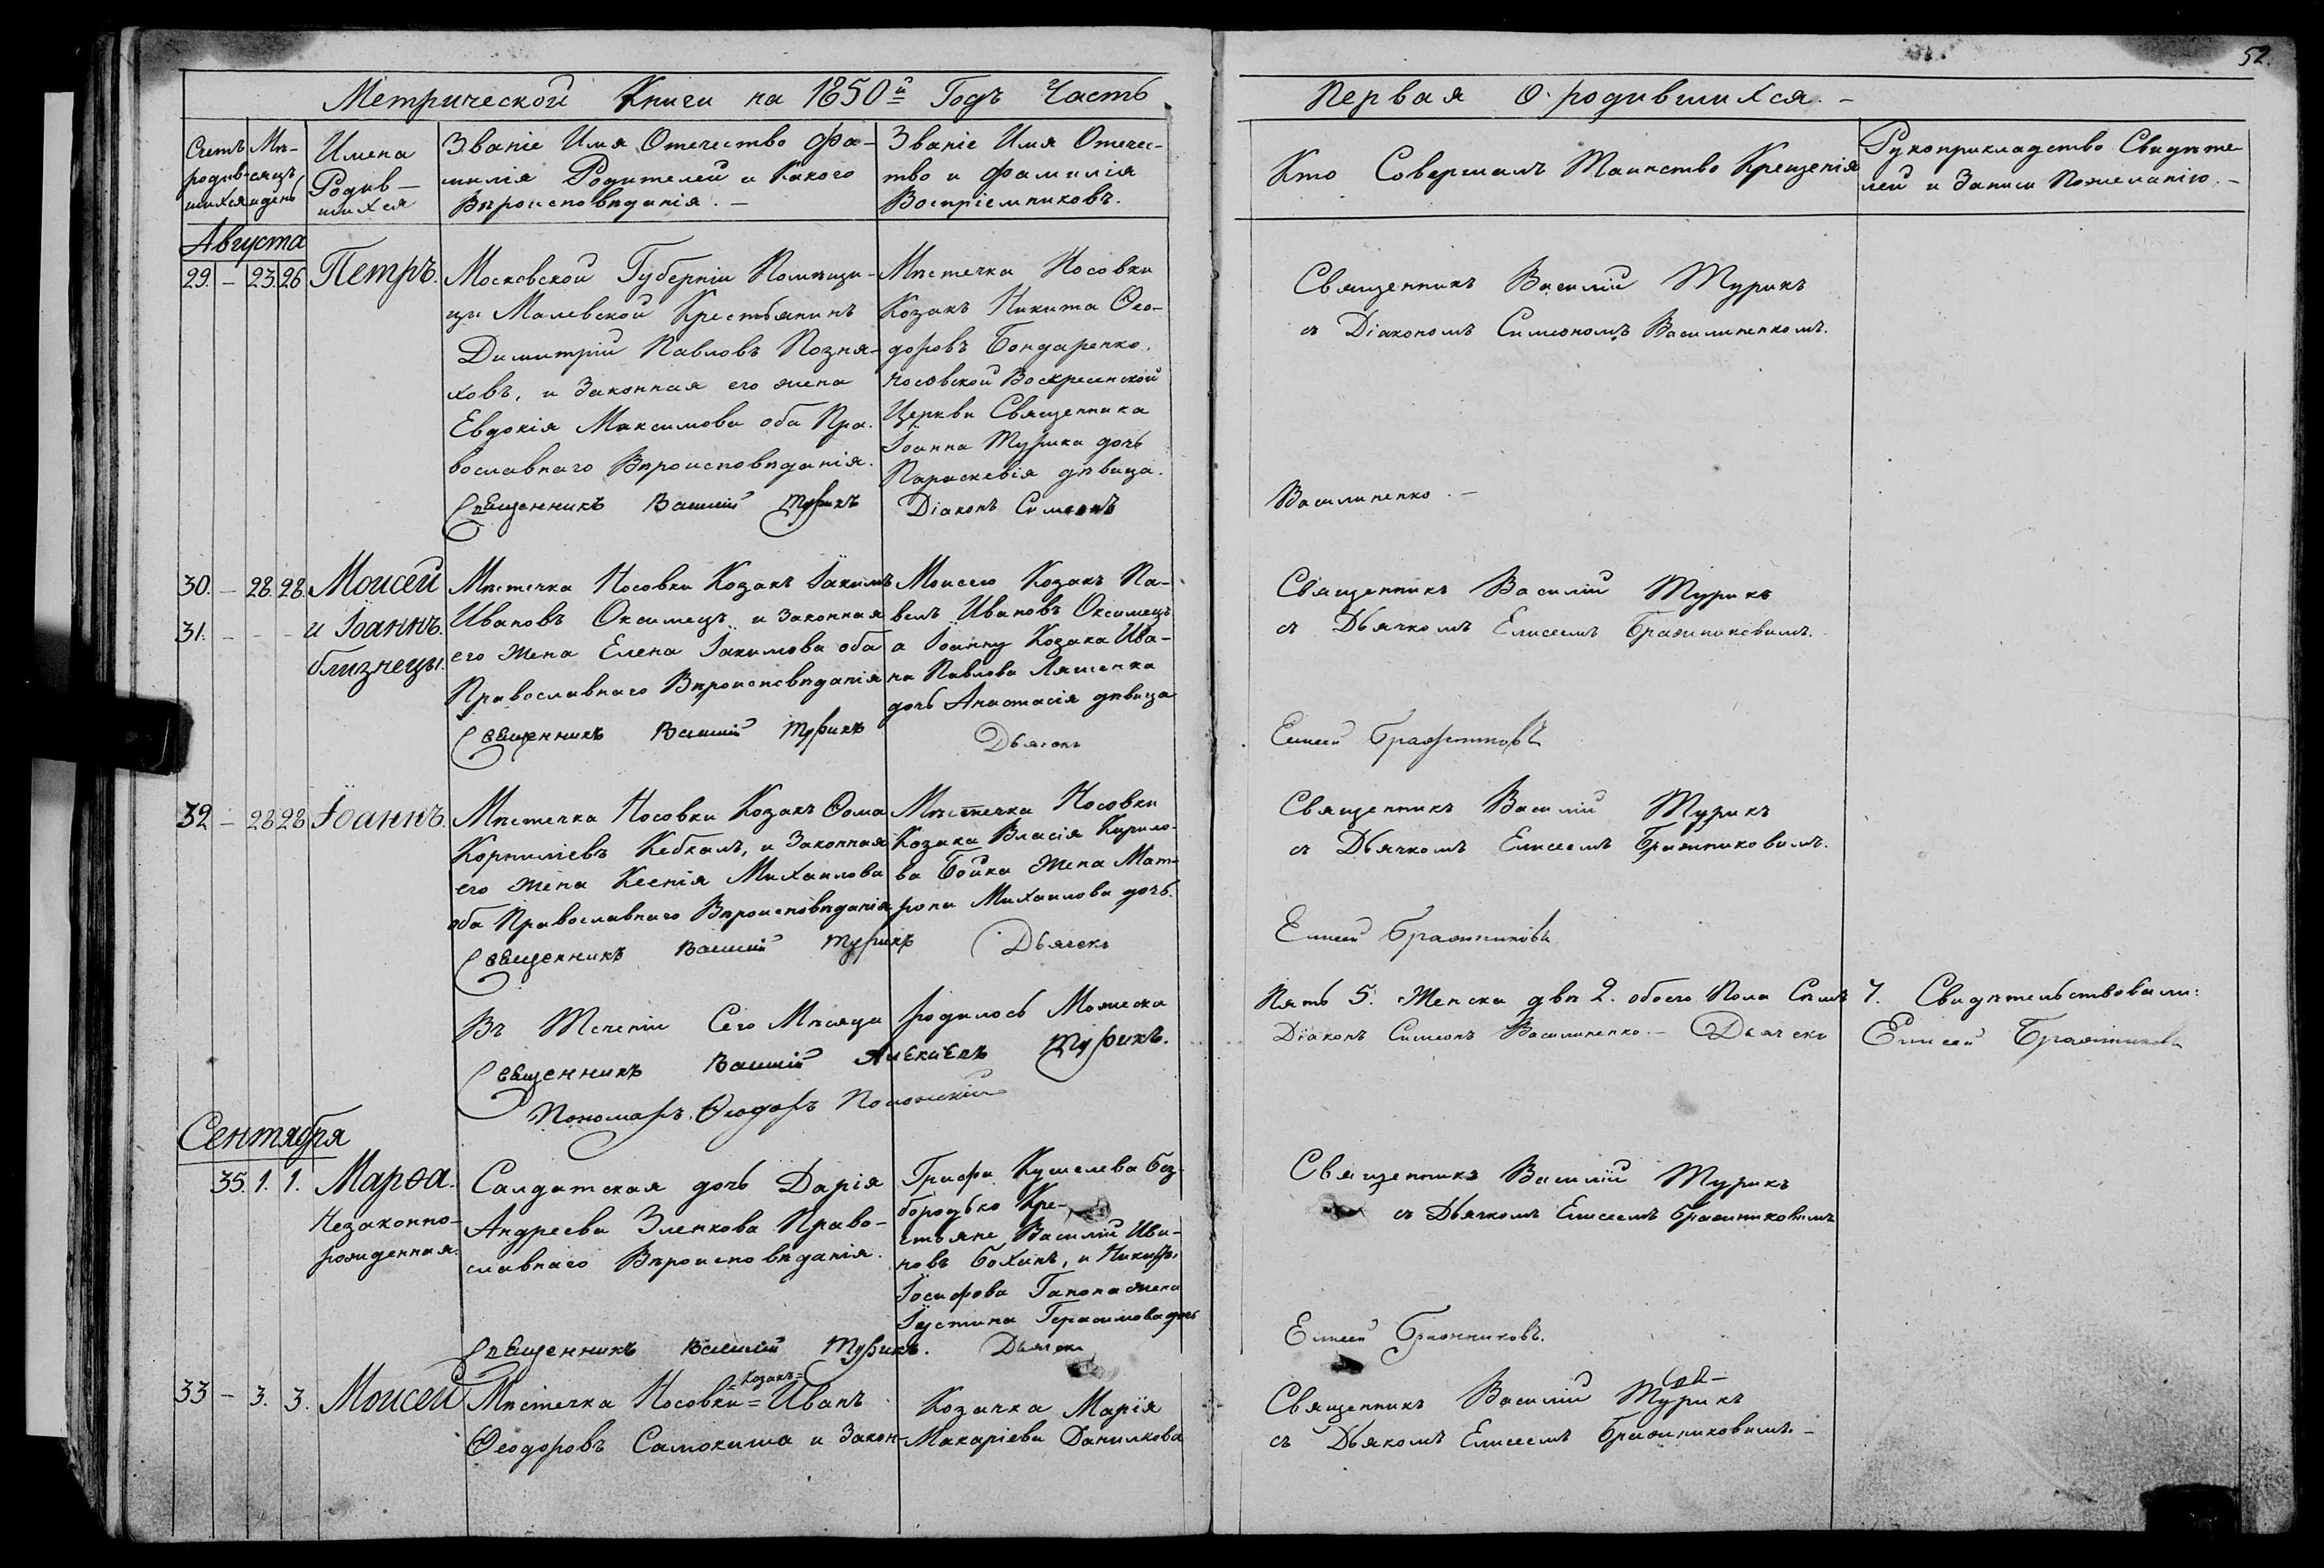 52.
Метрической Книги на 1850й Годъ Часть
Первая О родившихся. –
Счетъ родив-шихся
Мѣ-сяцъ и день
Имена
Родив-
шихся
Званіе Имя Отечество Фа-
милія Родителей и Какого
Вѣроисповѣданія. –
Званіе Имя Отечес-
тво и Фамилія
Воспріемниковъ.
Кто Совершалъ Таинство Крещенія
Рукоприкладство Свидѣте-
лей и Записи Пожеланію. –
Августа
29. – 23. 26
Петръ.
Московской Губерніи Помѣщи-
цы Малевской Крестьянинъ
Димитрій Павловъ Позня-
ковъ, и Законная его жена
Евдокія Максимова оба Пра-
вославнаго Вѣроисповѣданія.
Священникъ Василій Турикъ
Мѣстечка Носовки
Козакъ Никита Ѳео-
доровъ Бондаренко.
Носовской Воскресенской
Церкви Священника
Іоанна Турика дочь
Параскевія дѣвица.
Діаконъ Симеонъ
Священникъ Василій Турикъ
съ Діакономъ Симеономъ Василиненкомъ.
Василиненко. –
30. – 28. 28.
31. – – –
Моисей
и Іоаннъ.
близнецы.
Мѣстечка Носовки Козакъ Іакимъ
Ивановъ Оксимецъ и Законная
его жена Елена Іакимова оба
Православнаго Вѣроисповѣданія
Священникъ Василій Турикъ
Моисею Козакъ Па-
велъ Ивановъ Оксимецъ
а Іоанну Козака Ива-
на Павлова Ляшенка
дочь Анастасія дѣвица
Дьячокъ
Священникъ Василій Турикъ
съ Дьячкомъ Елисеемъ Бражниковимъ.
Елисей Бражниковъ
32 – 28 28
Іоаннъ.
Мѣстечка Носовки Козакъ Ѳома
Корниліевъ Кебкалъ, и Законная
его жена Ксенія Михаилова
оба Православнаго Вѣроисповѣданія
Священникъ Василій Турикъ
Мѣстечка Носовки
Козака Власія Кирило-
ва Бойка жена Мат-
рона Михаилова дочь.
Дьячекъ
Священникъ Василій Турикъ
съ Дьячкомъ Елисеемъ Бражниковимъ.
Елисей Бражниковъ
Въ Теченіи Сего Мѣсяца родилось Мужеска
Пять 5. Женска двѣ 2. обоего Пола Семь 7. Свидѣтельствовали:
Священникъ Василій Алексіевъ Турикъ.
Діаконъ Симеонъ Василиненко. – Дьячекъ Елисей Бражниковъ
Пономарь Ѳеодоръ
Сентября
35. 1. 1.
Марѳа.
Незаконно-
рожденная.
Салдатская дочь Дарія
Андреева Зленкова Право-
славнаго Вѣроисповѣданія.
Священникъ Василій Турикъ.
Графа Кушелева Без-
бородько Кре-
стьяне Василій Ива-
новъ Бохинъ, и Никифо.
Іосифова Гапона жена
Іустина Герасимова дочь
Дьячекъ
Священникъ Василій Турикъ
съ Дьячкомъ Елисеемъ Бражниковимъ
Елисей Бражниковъ.
33 – 3. 3.
Моисей
Мѣстечка Носовки =Козакъ= Иванъ
Ѳеодоровъ Самокиша и Закон-
Козачка Марія
Макаріева Данилкова
Священникъ Василій Турикъ
съ Дьякомъ Елисеемъ Бражниковимъ. –